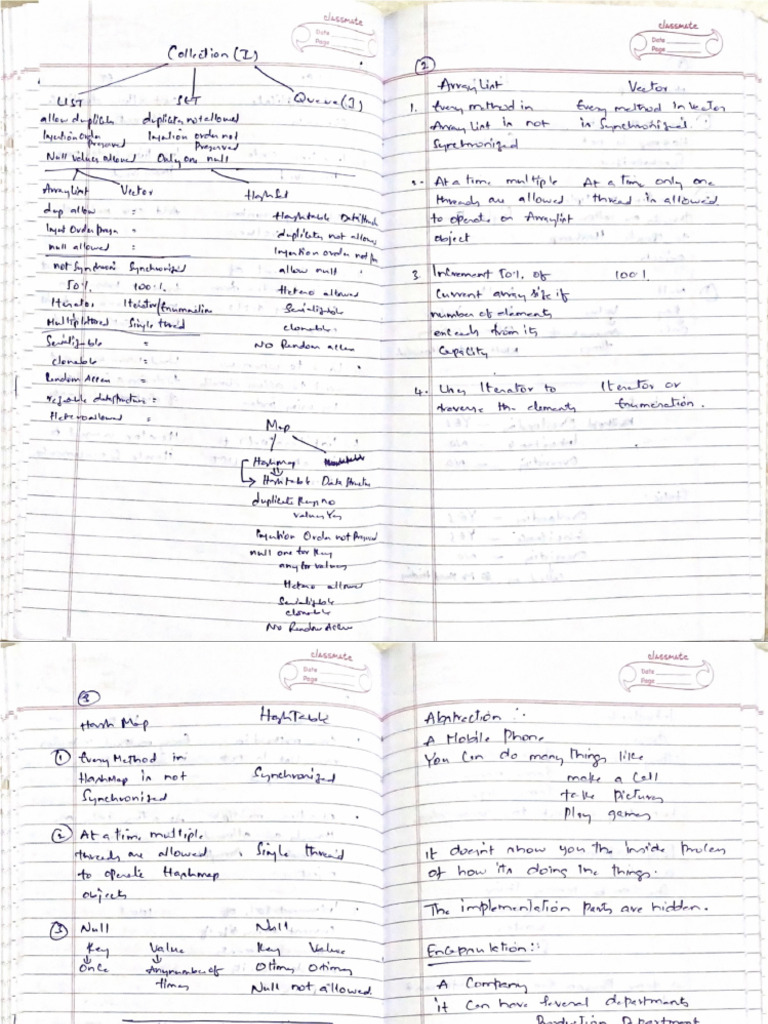 classmate
Date
Page
Collection (I)
LIST SET Queue(I)
allow duplicates duplicates not allowed
Insertion Order Preserved Insertion order not Preserved
Null values allowed Only one null
ArrayList Vector HashSet
dup allow "
Hashtable Data
duplicates not allowed
null allowed "
Insertion order not
not Synchroni Synchronized allow null
50% 100% Hetero allowed
Iterator Iterator/Enumeration Serializable
Multiple thred Single thred clonable
Serializable " No Random Access
clonable "
Random Access "
datastructure "
Hetero allowed "
Map
HashMap Hashtable
HashTable Data Structur
duplicate Keys no
values Yes
Insertion Order not Preserved
null one for Key
any for values
Hetero allowed
Serializable
clonable
No Random Access
classmate
Date
Page
2
ArrayList Vector
1. Every method in Every method in Vector
ArrayList is not is Synchronized.
Synchronized
2. At a time multiple At a time only one
threads are allowed thread is allowed
to operate on Arraylist
object
3 Increment 50% of 100%
Current array size if
number of elements
exceeds from its
Capacity
4. Uses Iterator to Iterator or
traverse the elements Enumeration.
classmate
Date
Page
3
Hash Map HashTable
1 Every Method in
HashMap is not Synchronized
Synchronized
2 At a time multiple
threads are allowed Single thread
to operate Hashmap
objects
3 Null Null
Key Value Key Value
Once Anynumber of 0 times 0 times
times Null not allowed
classmate
Date
Page
Abstraction :
A Mobile Phone
You Can do many things like
make a Call
take pictures
Play games
it doesn't show you the inside
of how its doing the things.
The implementation parts are hidden.
Encapsulation::
A Company
it Can have Several departments
Production Department